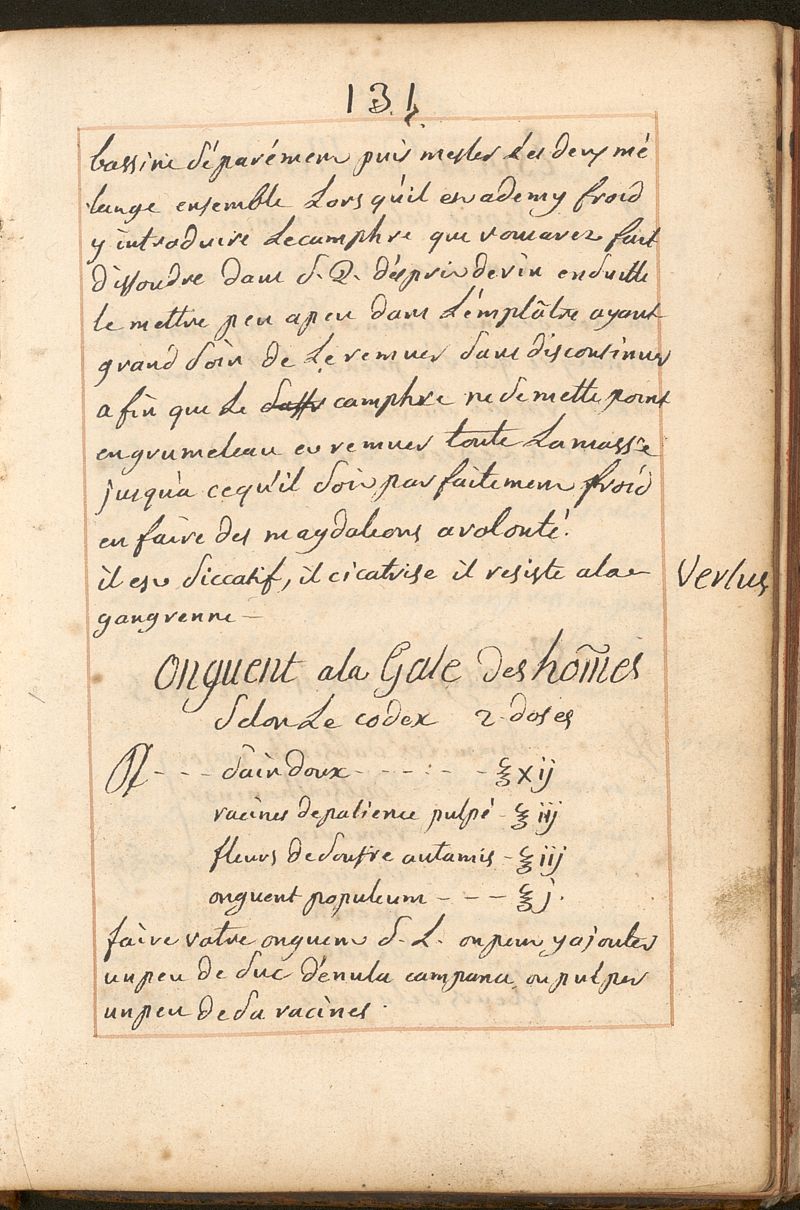 131
bassine séparémem puis mesler Les deux mé
lange ensemble Lors qu'il est ademy froid
y introduire Lecamphre que vous avez fait
dissoudre dans S. Q. désprit devin ensuitte
le mettre peu apeu dans L'émplâtre ayant
grand soin de Le remuer sans discontinuer
afin que Le camphre ne se mette point
engrumeleau et remuer toute La masse
jusqu'a cequ'il soit parfaitement froid
en faire des magdaleons avolonté.
il est siccatif, il cicatrise il resiste ala
gangrenne -
Vertus
Onguent ala Gale des hom̃es
Selon Le codex 2. doses
℞ - - - sain doux - - - - - - ℥ xij
racines depatience pulpé - ℥ iij
fleurs de soufre autamis - ℥ iij
onguent populeum - - - ℥ j.
faire votre onguent S. L. on peut y ajouter
un peu de suc d'énula campana ou pulper
un peu de sa racines.